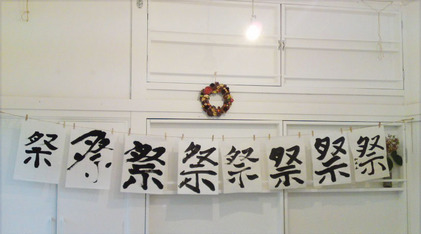 祭 祭 祭 祭 祭 祭 祭 祭